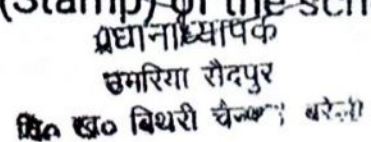 (Stamp) of the sch
प्रधानाध्यापक
उमरिया सैदपुर
वि० ख० बिथरी चैन० बरेली